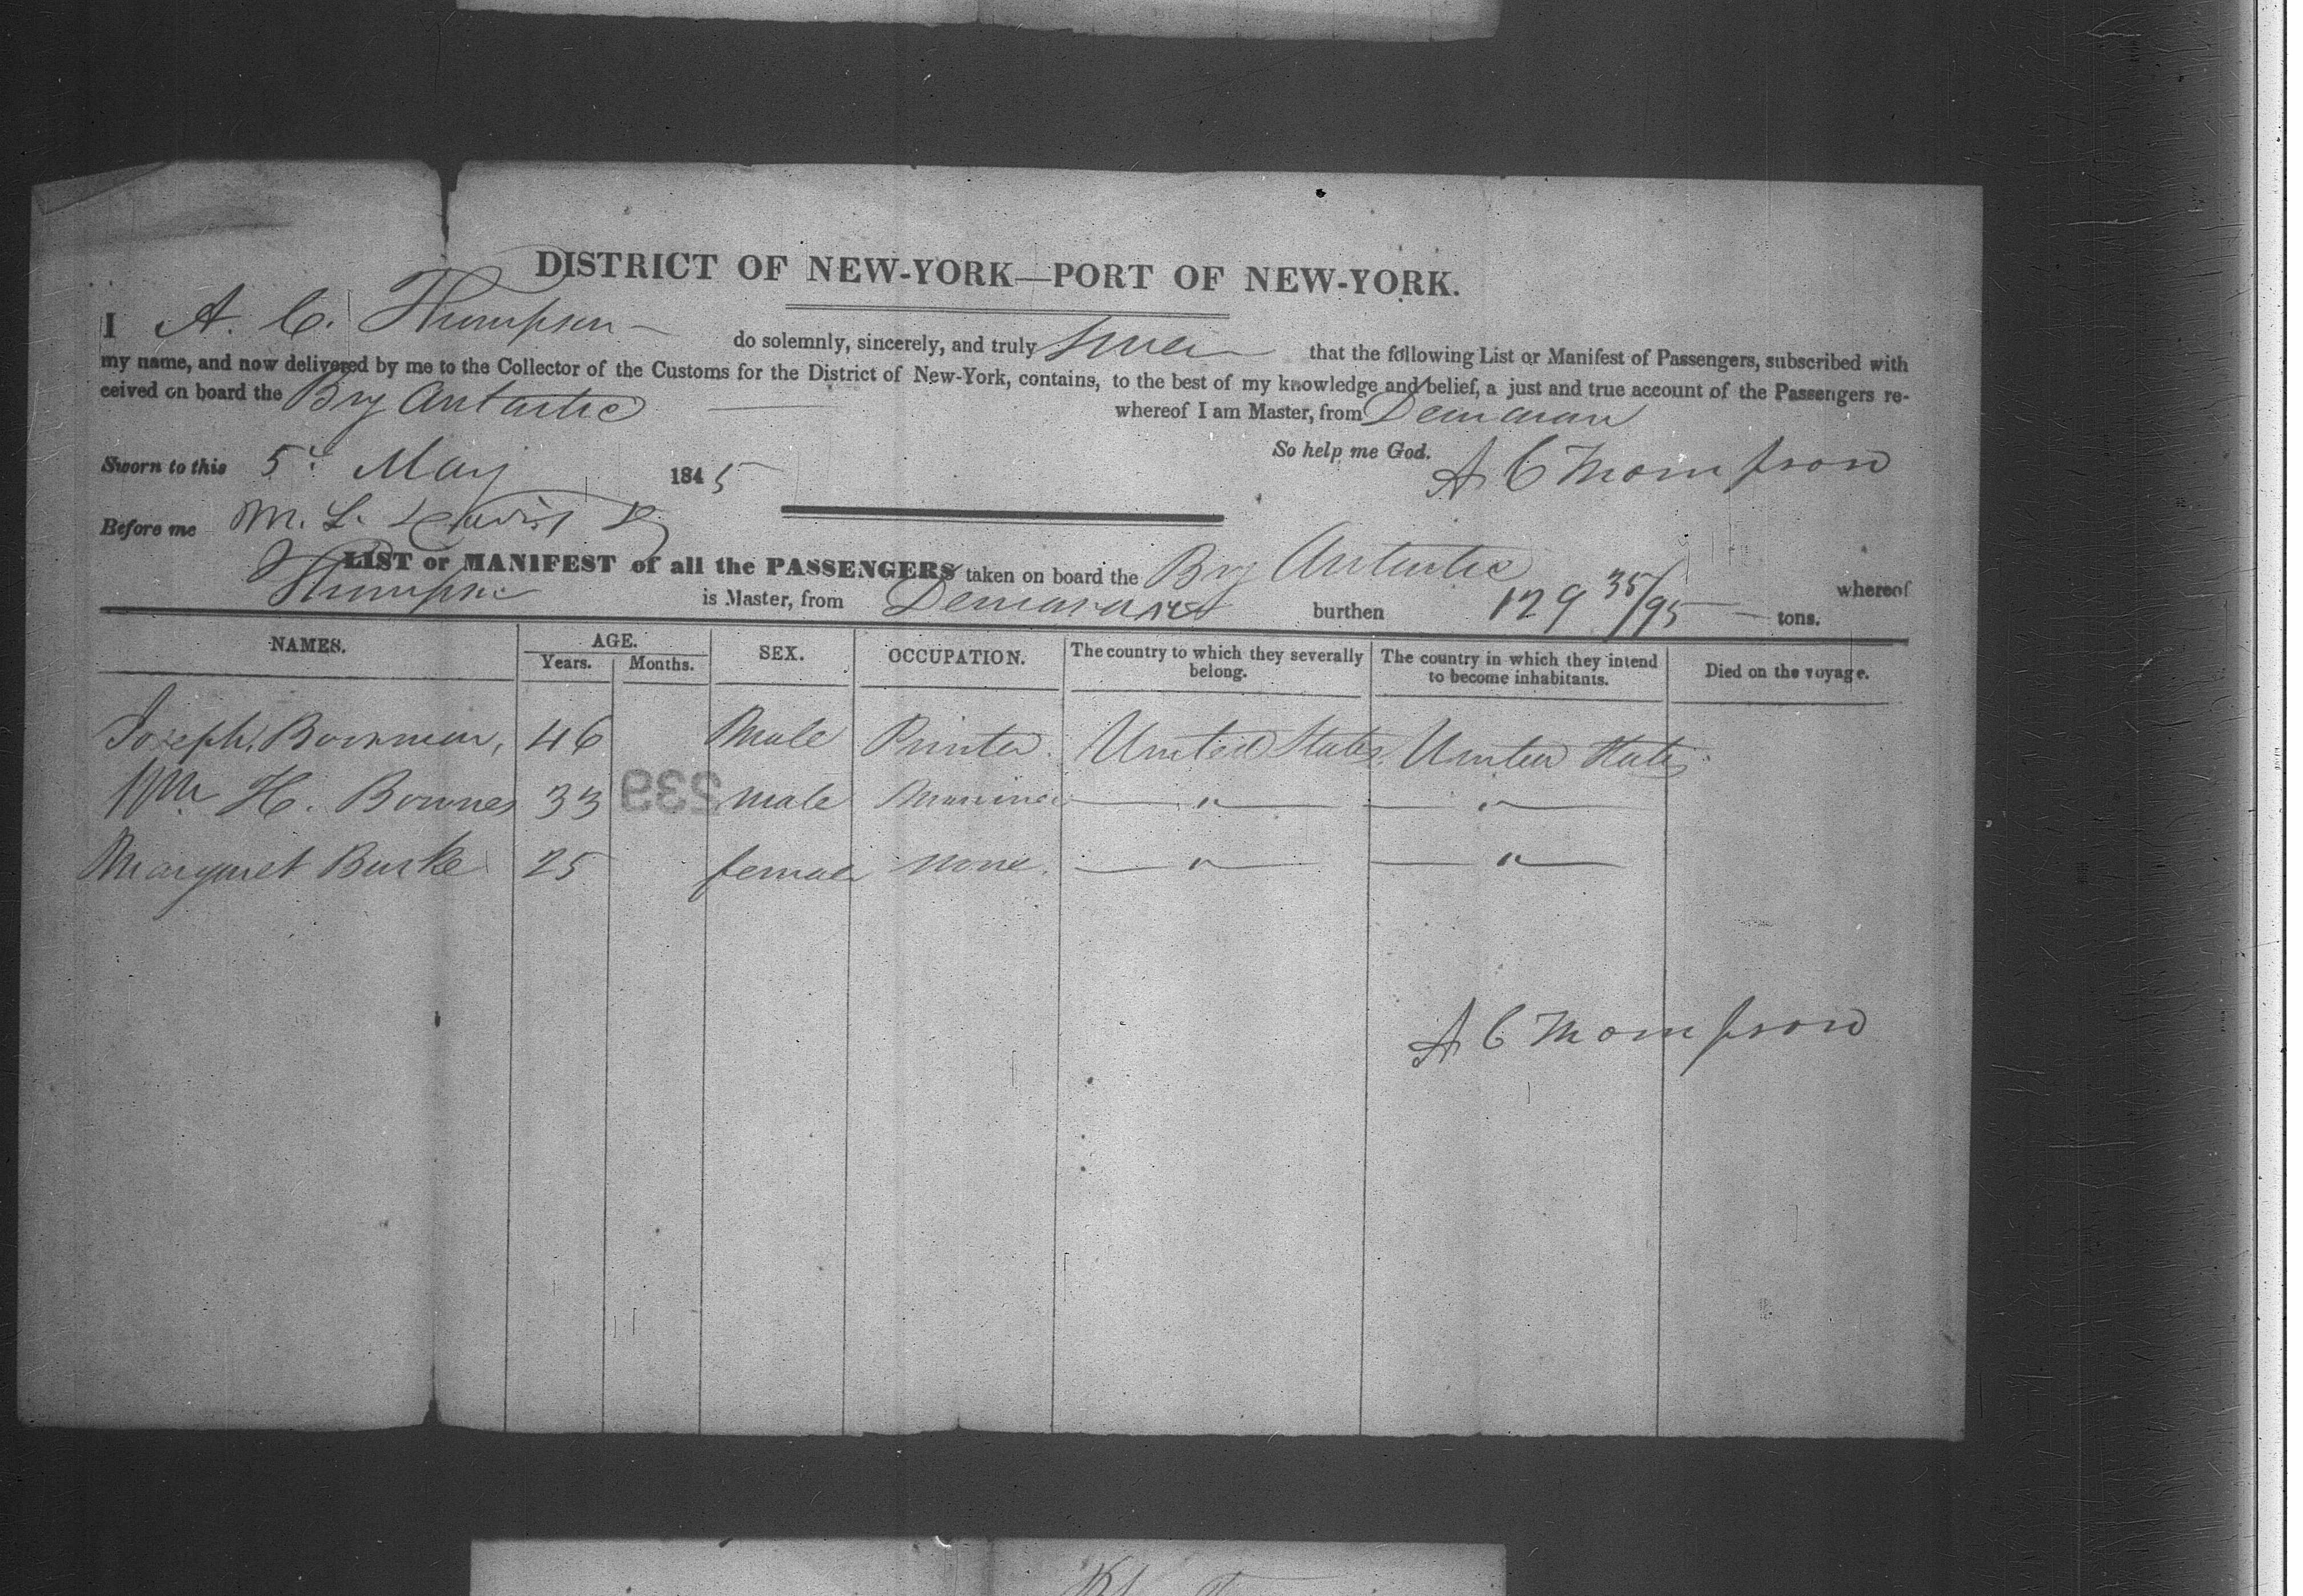 DISTRICT OF NEW-YORK—PORT OF NEW-YORK.
I A. C. Thompson do solemnly, sincerely, and truly swear that the following List or Manifest of Passengers, subscribed with
my name, and now delivered by me to the Collector of the Customs for the District of New-York, contains, to the best of my knowledge and belief, a just and true account of the Passengers re-
ceived on board the Brig Antartic whereof I am Master, from Demarara
So help me God.
Sworn to this 5th May 1845 A C Thompson
Before me M. L.
LIST or MANIFEST of all the PASSENGERS taken on board the Brig Antartic whereof
Thompson is Master, from Demarara burthen 129 35/95 tons.
NAMES. AGE. SEX. OCCUPATION. The country to which they severally belong. The country in which they intend to become inhabitants. Died on the voyage.
Years. Months.
Joseph Bowman, 46 Male Printer. United States. United States
Wm H. Bownes 33 male Mariner " "
Margaret Burke 25 female none. " "
539
A C Thompson